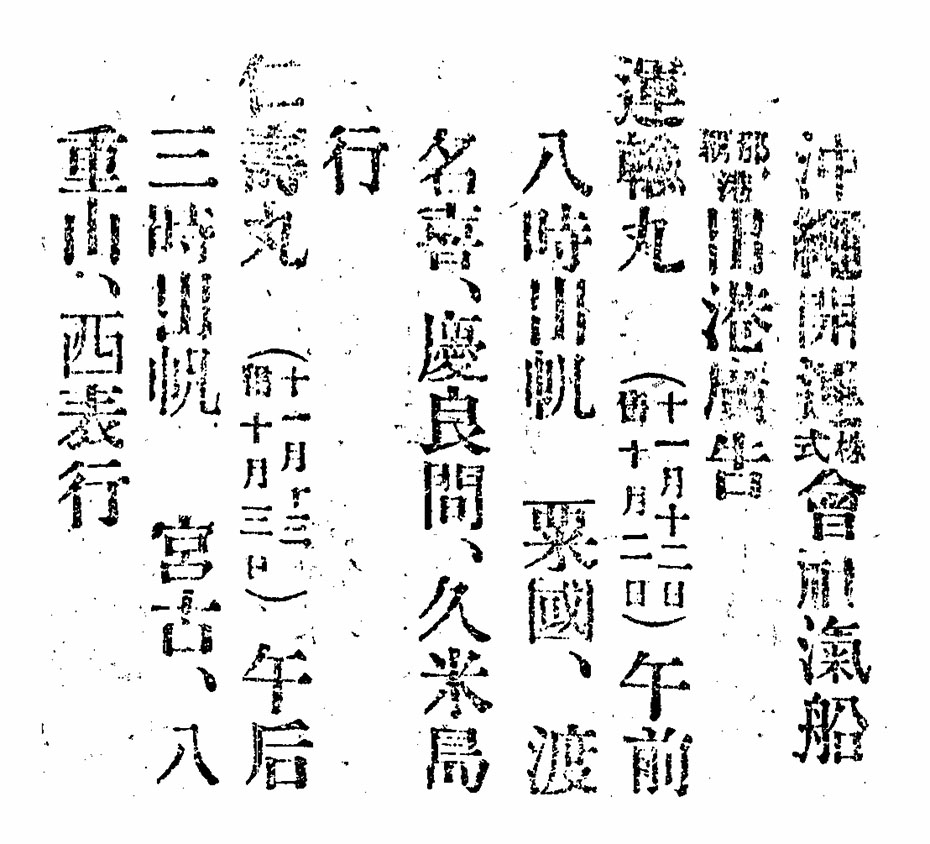 沖繩開運株式會社汽船
那覇港出港廣告
運輸丸 (十一月十二日 舊十月二日) 午前
八時出帆 粟國、渡
名喜、慶良間、久米島
行
仁壽丸 (十一月十三 舊十月三日) 午后
三時出帆 宮古、八
重山、西表行